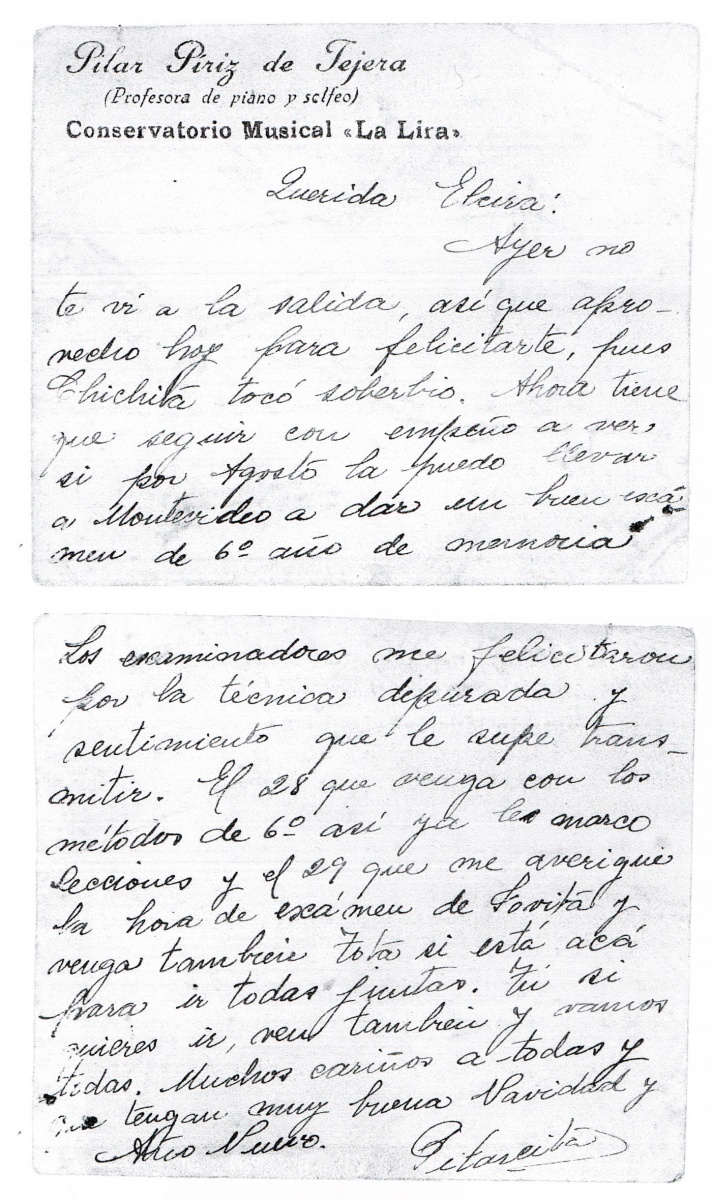 Pilar Píriz de Tejera
(Profesora de piano y solfeo)
Conservatorio Musical «La Lira»
Querida Elcira:
Ayer no
te ví a la salida, así que apro-
vecho hoy para felicitarte, pues
Chichita tocó soberbio. Ahora tiene
que seguir con empeño a ver,
si por Agosto la puedo llevar
a Montevideo a dar un buen exá
men de 6º año de memoria
Los examinadores me felicitaron
por la técnica depurada y
sentimiento que le supe trans-
mitir. El 28 que venga con los
métodos de 6º así ya le marco
lecciones y el 29 que me averigüe
la hora de exámen de Jovita y
venga tambien Tota si está acá
para ir todas juntas. Tú si
quieres ir, ven tambien y vamos
todas. Muchos cariños a todas y
que tengan muy buena Navidad y
Año Nuevo. Pilarcita